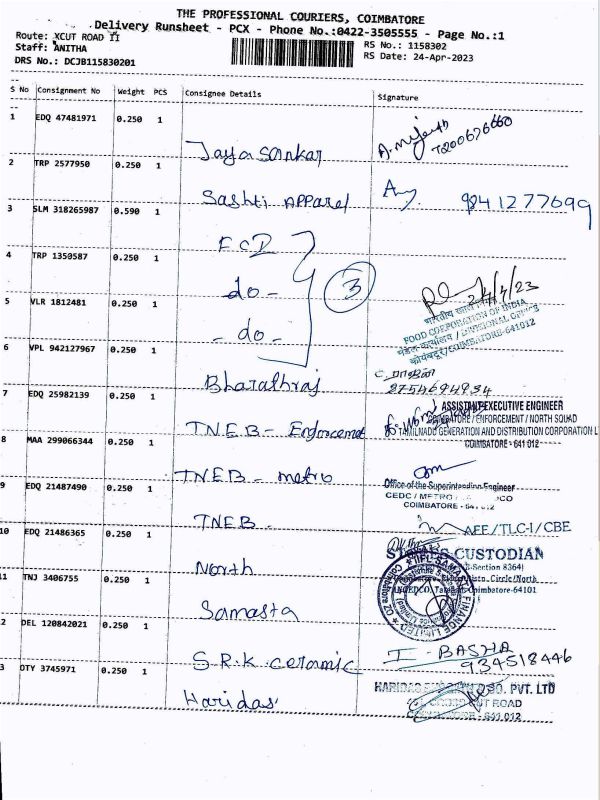 THE PROFESSIONAL COURIERS, COIMBATORE
Delivery Runsheet - PCX - Phone No.:0422-3505555 - Page No.:1
Route: XCUT ROAD II
RS No.: 1158302
Staff: ANITHA
RS Date: 24-Apr-2023
DRS No.: DCJB115830201
S No Consignment No Weight PCS Consignee Details Signature
1 EDQ 47481971 0.250 1
Jayasankar
2 TRP 2577950 0.250 1
Sashti APPArel 9841277699
3 SLM 318265987 0.590 1
FCI
4 TRP 1350587 0.250 1
do - 3 24/4/23
5 VLR 1812481 0.250 1
- do - FOOD CORPORATION OF INDIA
COIMBATORE-641012
6 VPL 942127967 0.250 1
Bharathraj 8754694934
7 EDQ 25982139 0.250 1
ASSISTANT EXECUTIVE ENGINEER
/ ENFORCEMENT / NORTH SQUAD
TNEB - Enforcement TAMILNADU GENERATION AND DISTRIBUTION CORPORATION L
8 MAA 299066344 0.250 1
COIMBATORE - 641 012
TNEB - metro Office of the Superintending Engineer
9 EDQ 21487490 0.250 1
CEDC / METRO
COIMBATORE - 641 012
TNEB - AEE/TLC-I/CBE
10 EDQ 21486365 0.250 1
CUSTODIAN
North
11 TNJ 3406755 0.250 1
Samasta
2 DEL 120842021 0.250 1
I - BASHA
S.R.K ceramic 934518446
3 OTY 3745971 0.250 1
HARIDAS CO. PVT. LTD
Haridas CUT ROAD
641 012